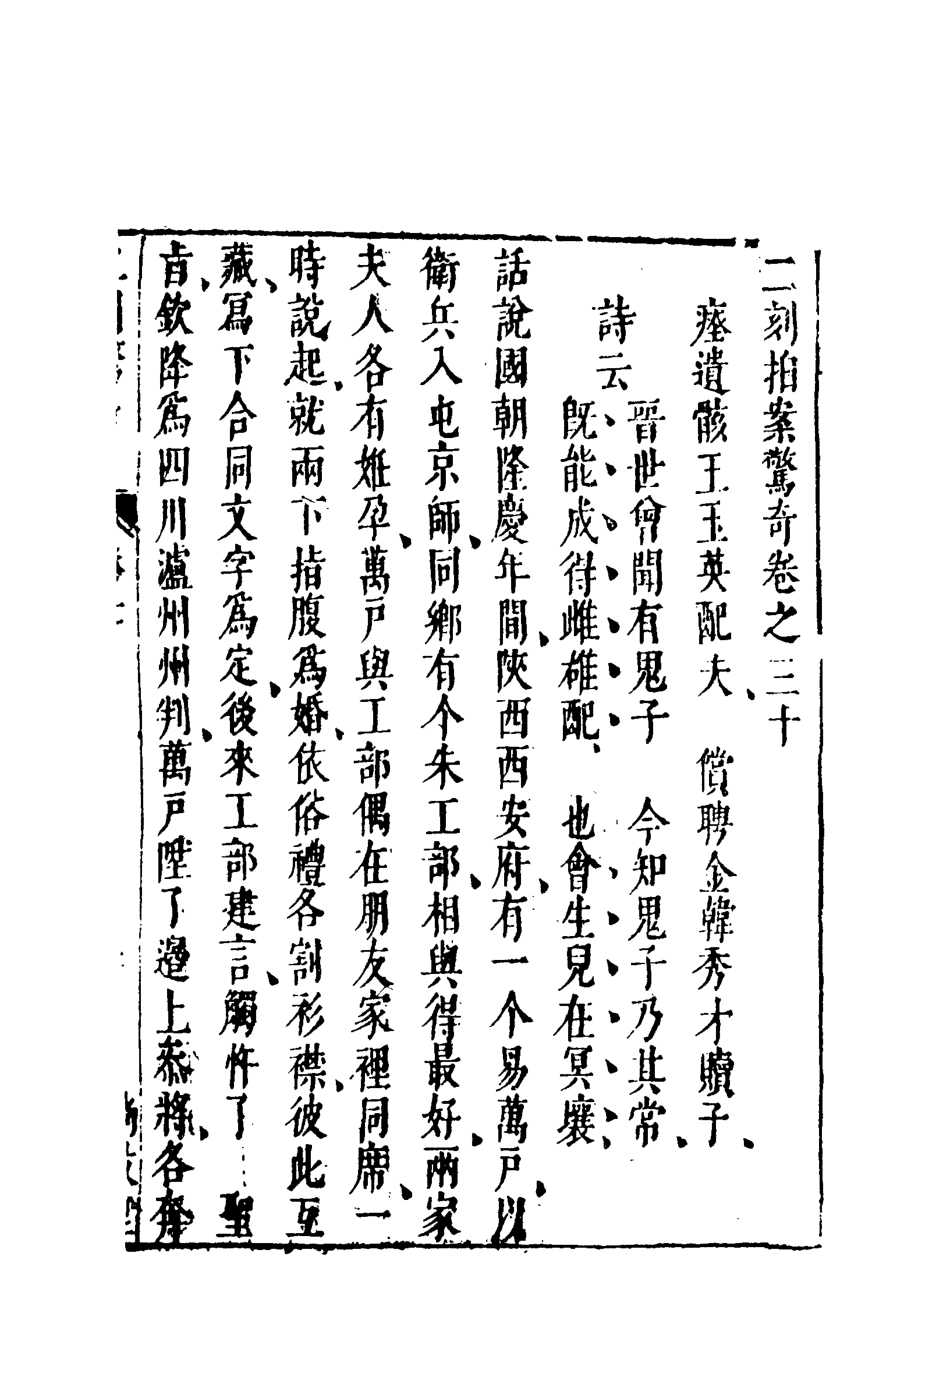 二刻拍案驚奇卷之三十
瘞遺骸王玉英配夫、　償聘金韓秀才贖子、
詩云
晉世曾聞有鬼子　今知鬼子乃其常、
既能成得雌雄配、　也會生兒在冥壤、
話說國朝隆慶年間、陝西西安府、有一个易萬戶、以
衛兵入屯京師、同鄉有个朱工部、相與得最好、兩家
夫人各有姙孕、萬戶與工部偶在朋友家裡同席、一
時說起、就兩下指腹爲婚、依俗禮各割衫襟、彼此互
藏、寫下合同文字爲定、後來工部建言、觸忤了　聖
旨、欽降爲四川瀘州州判、萬戶陞了邉上叅將、各奔